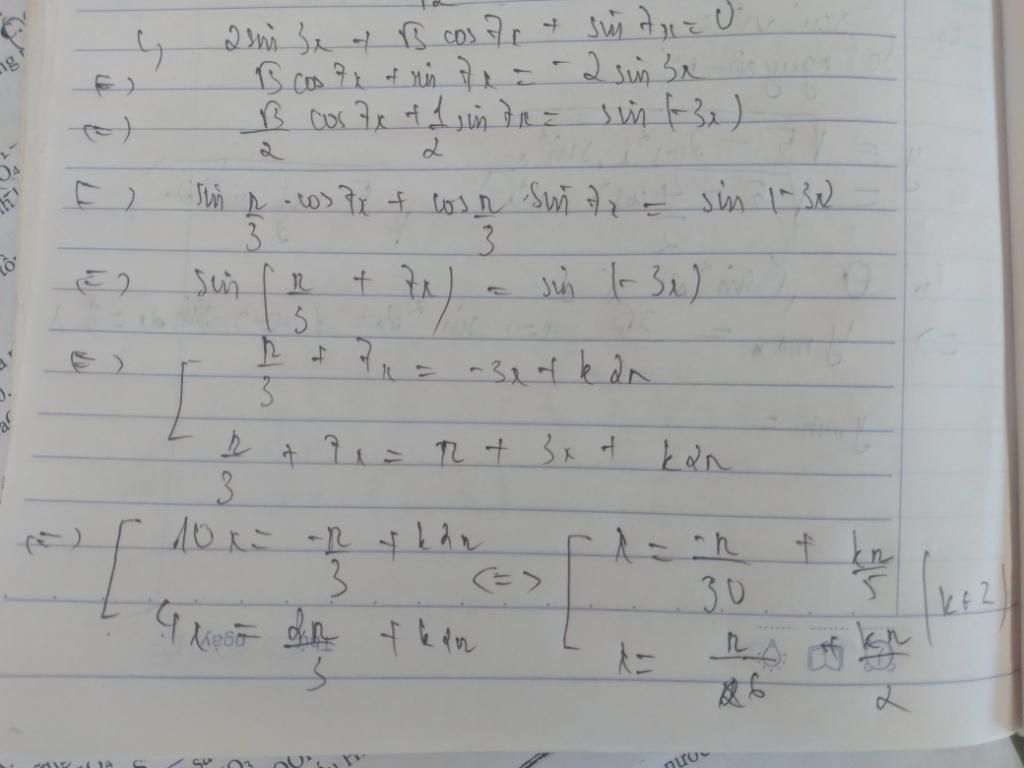 c, 2sin 3x + √3 cos 7x + sin 7x = 0
⇔) √3 cos 7x + sin 7x = - 2 sin 3x
(=) √3/2 cos 7x + 1/2 sin 7x = sin (-3x)
⇔) sin π/3 . cos 7x + cos π/3 . sin 7x = sin (-3x)
⇔) sin (π/3 + 7x) = sin (-3x)
⇔) [ π/3 + 7x = -3x + k2π
π/3 + 7x = π + 3x + k2π
⇔) [ 10x = -π/3 + k2π (=) [ x = -π/30 + kπ/5 (k∈Z)
4x = 2π/3 + k2π x = π/6 + kπ/2